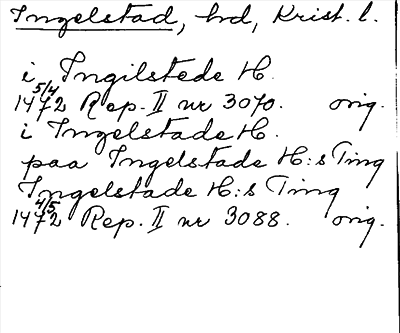 Ingelstad, hd, Krist. l.
i Ingilstede H.
1472 5/4 Rep. II nr 3070. orig.
i Ingelstade H.
paa Ingelstade H:s Ting
Ingelstade H:s Ting
1472 4/5 Rep. II nr 3088. orig.